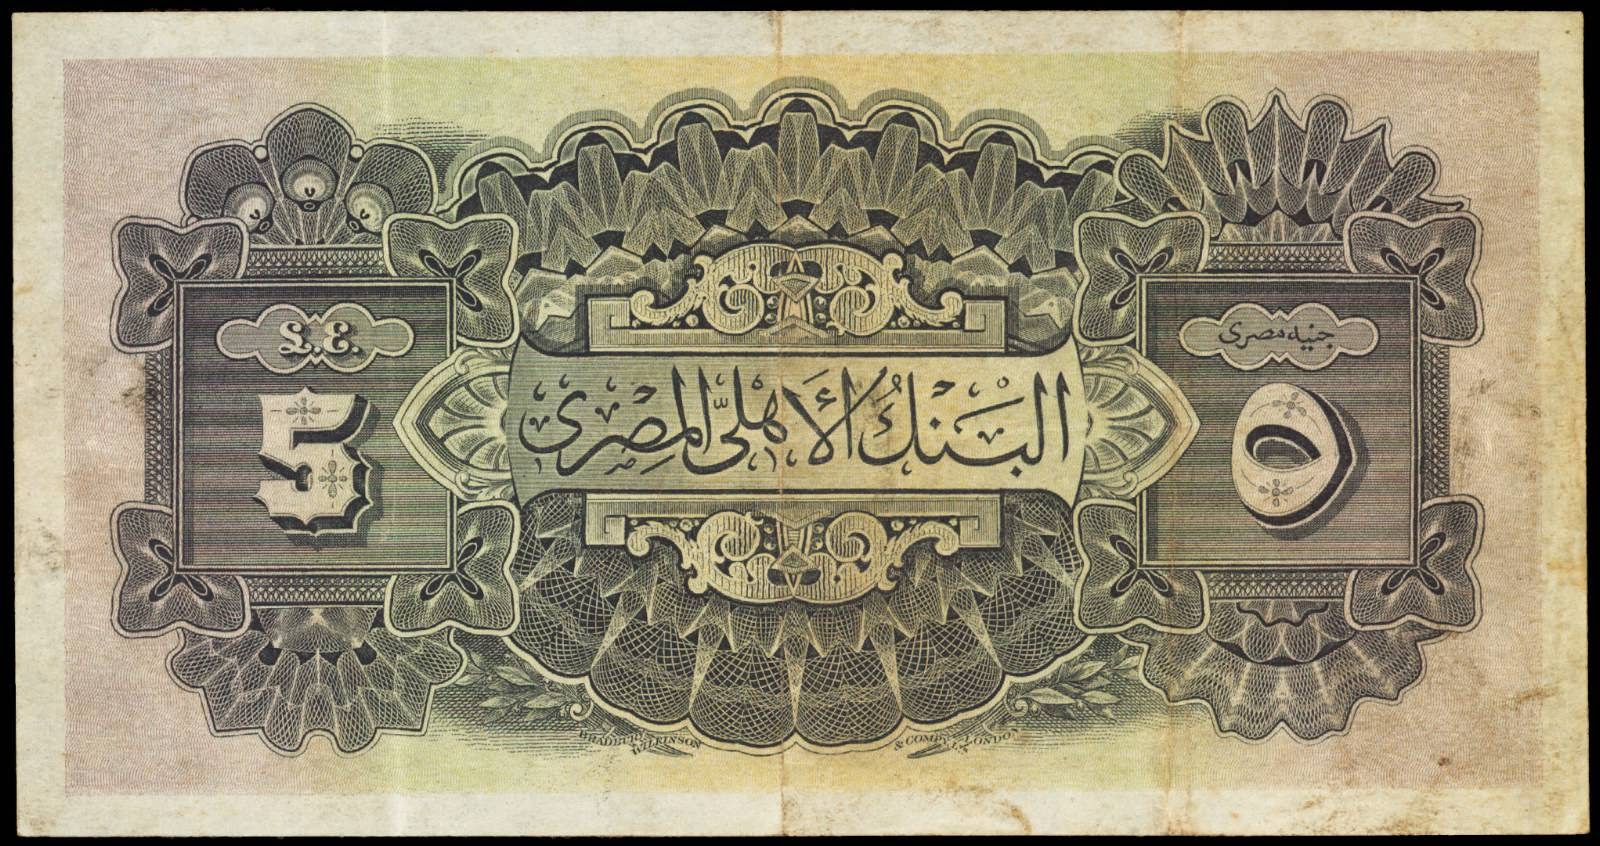 £.E.
5
البَنْكُ الأَهْلِىُّ المِصْرِىُّ
جنيه مصرى
٥
BRADBURY WILKINSON & COMPY. LD. LONDON